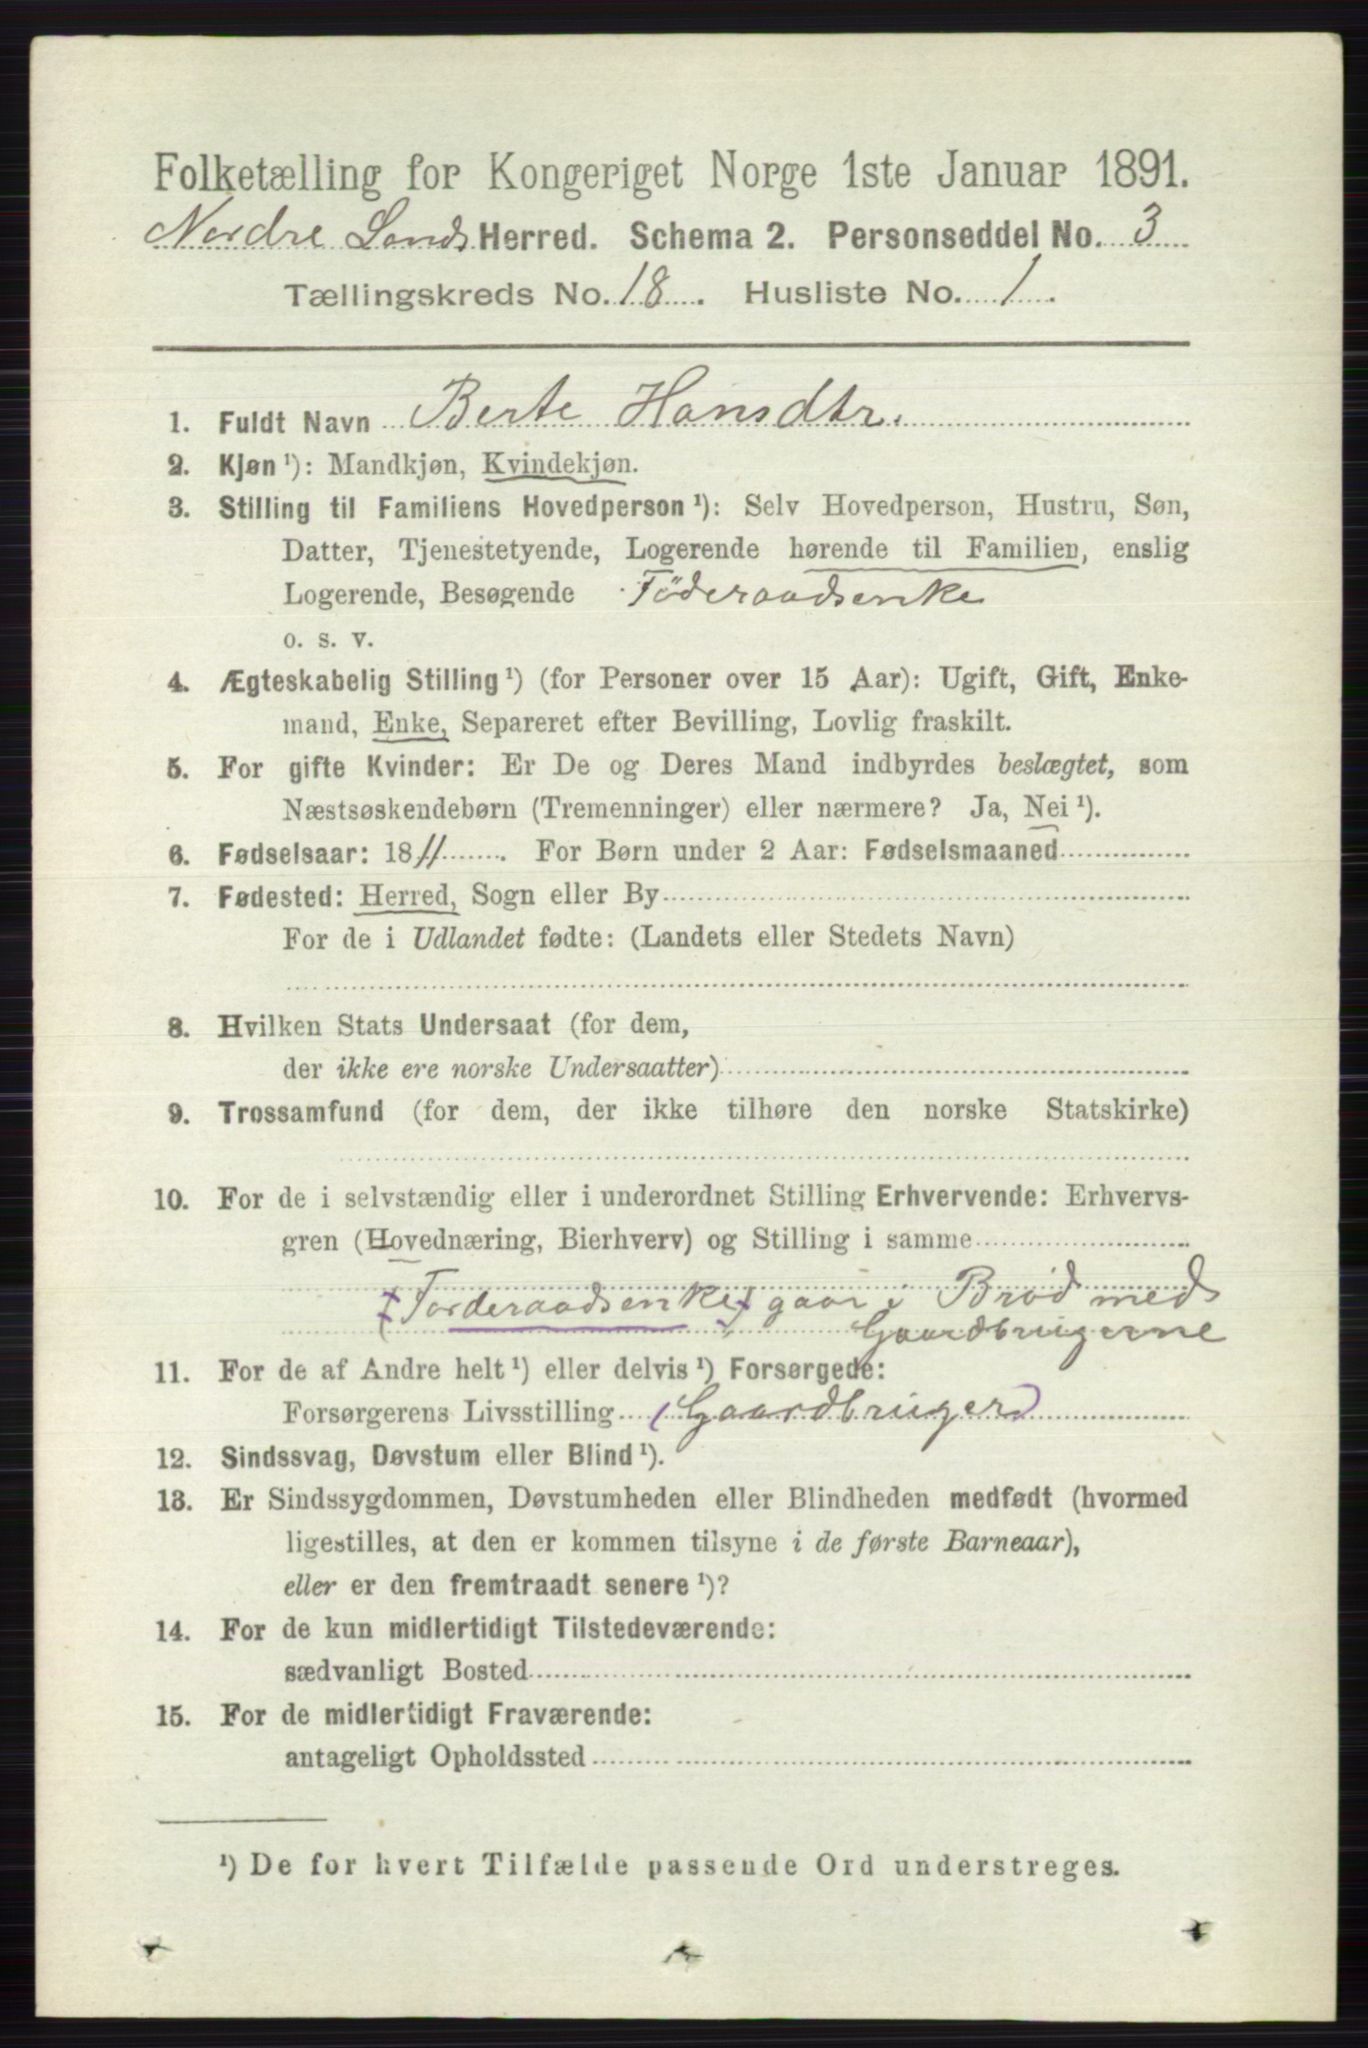 Folketælling for Kongeriget Norge 1ste Januar 1891.
Nordre Lands Herred. Schema 2. Personseddel No. 3
Tællingskreds No. 18. Husliste No. 1.
1. Fuldt Navn Berte Hansdtr.
2. Kjøn ¹): Mandkjøn, Kvindekjøn.
3. Stilling til Familiens Hovedperson ¹): Selv Hovedperson, Hustru, Søn,
Datter, Tjenestetyende, Logerende hørende til Familien, enslig
Logerende, Besøgende Föderaadsenke
o. s. v.
4. Ægteskabelig Stilling ¹) (for Personer over 15 Aar): Ugift, Gift, Enke-
mand, Enke, Separeret efter Bevilling, Lovlig fraskilt.
5. For gifte Kvinder: Er De og Deres Mand indbyrdes beslægtet, som
Næstsøskendebørn (Tremenninger) eller nærmere? Ja, Nei ¹).
6. Fødselsaar: 1811. For Børn under 2 Aar: Fødselsmaaned
7. Fødested: Herred, Sogn eller By
For de i Udlandet fødte: (Landets eller Stedets Navn)
8. Hvilken Stats Undersaat (for dem,
der ikke ere norske Undersaatter)
9. Trossamfund (for dem, der ikke tilhøre den norske Statskirke)
10. For de i selvstændig eller i underordnet Stilling Erhvervende: Erhvervs-
gren (Hovednæring, Bierhverv) og Stilling i samme
Forderaadsenke gaar i Brød med
Gaardbrugerne
11. For de af Andre helt ¹) eller delvis ¹) Forsørgede:
Forsørgerens Livsstilling (Gaardbruger)
12. Sindssvag, Døvstum eller Blind ¹).
13. Er Sindssygdommen, Døvstumheden eller Blindheden medfødt (hvormed
ligestilles, at den er kommen tilsyne i de første Barneaar),
eller er den fremtraadt senere ¹)?
14. For de kun midlertidigt Tilstedeværende:
sædvanligt Bosted
15. For de midlertidigt Fraværende:
antageligt Opholdssted
¹) De for hvert Tilfælde passende Ord understreges.